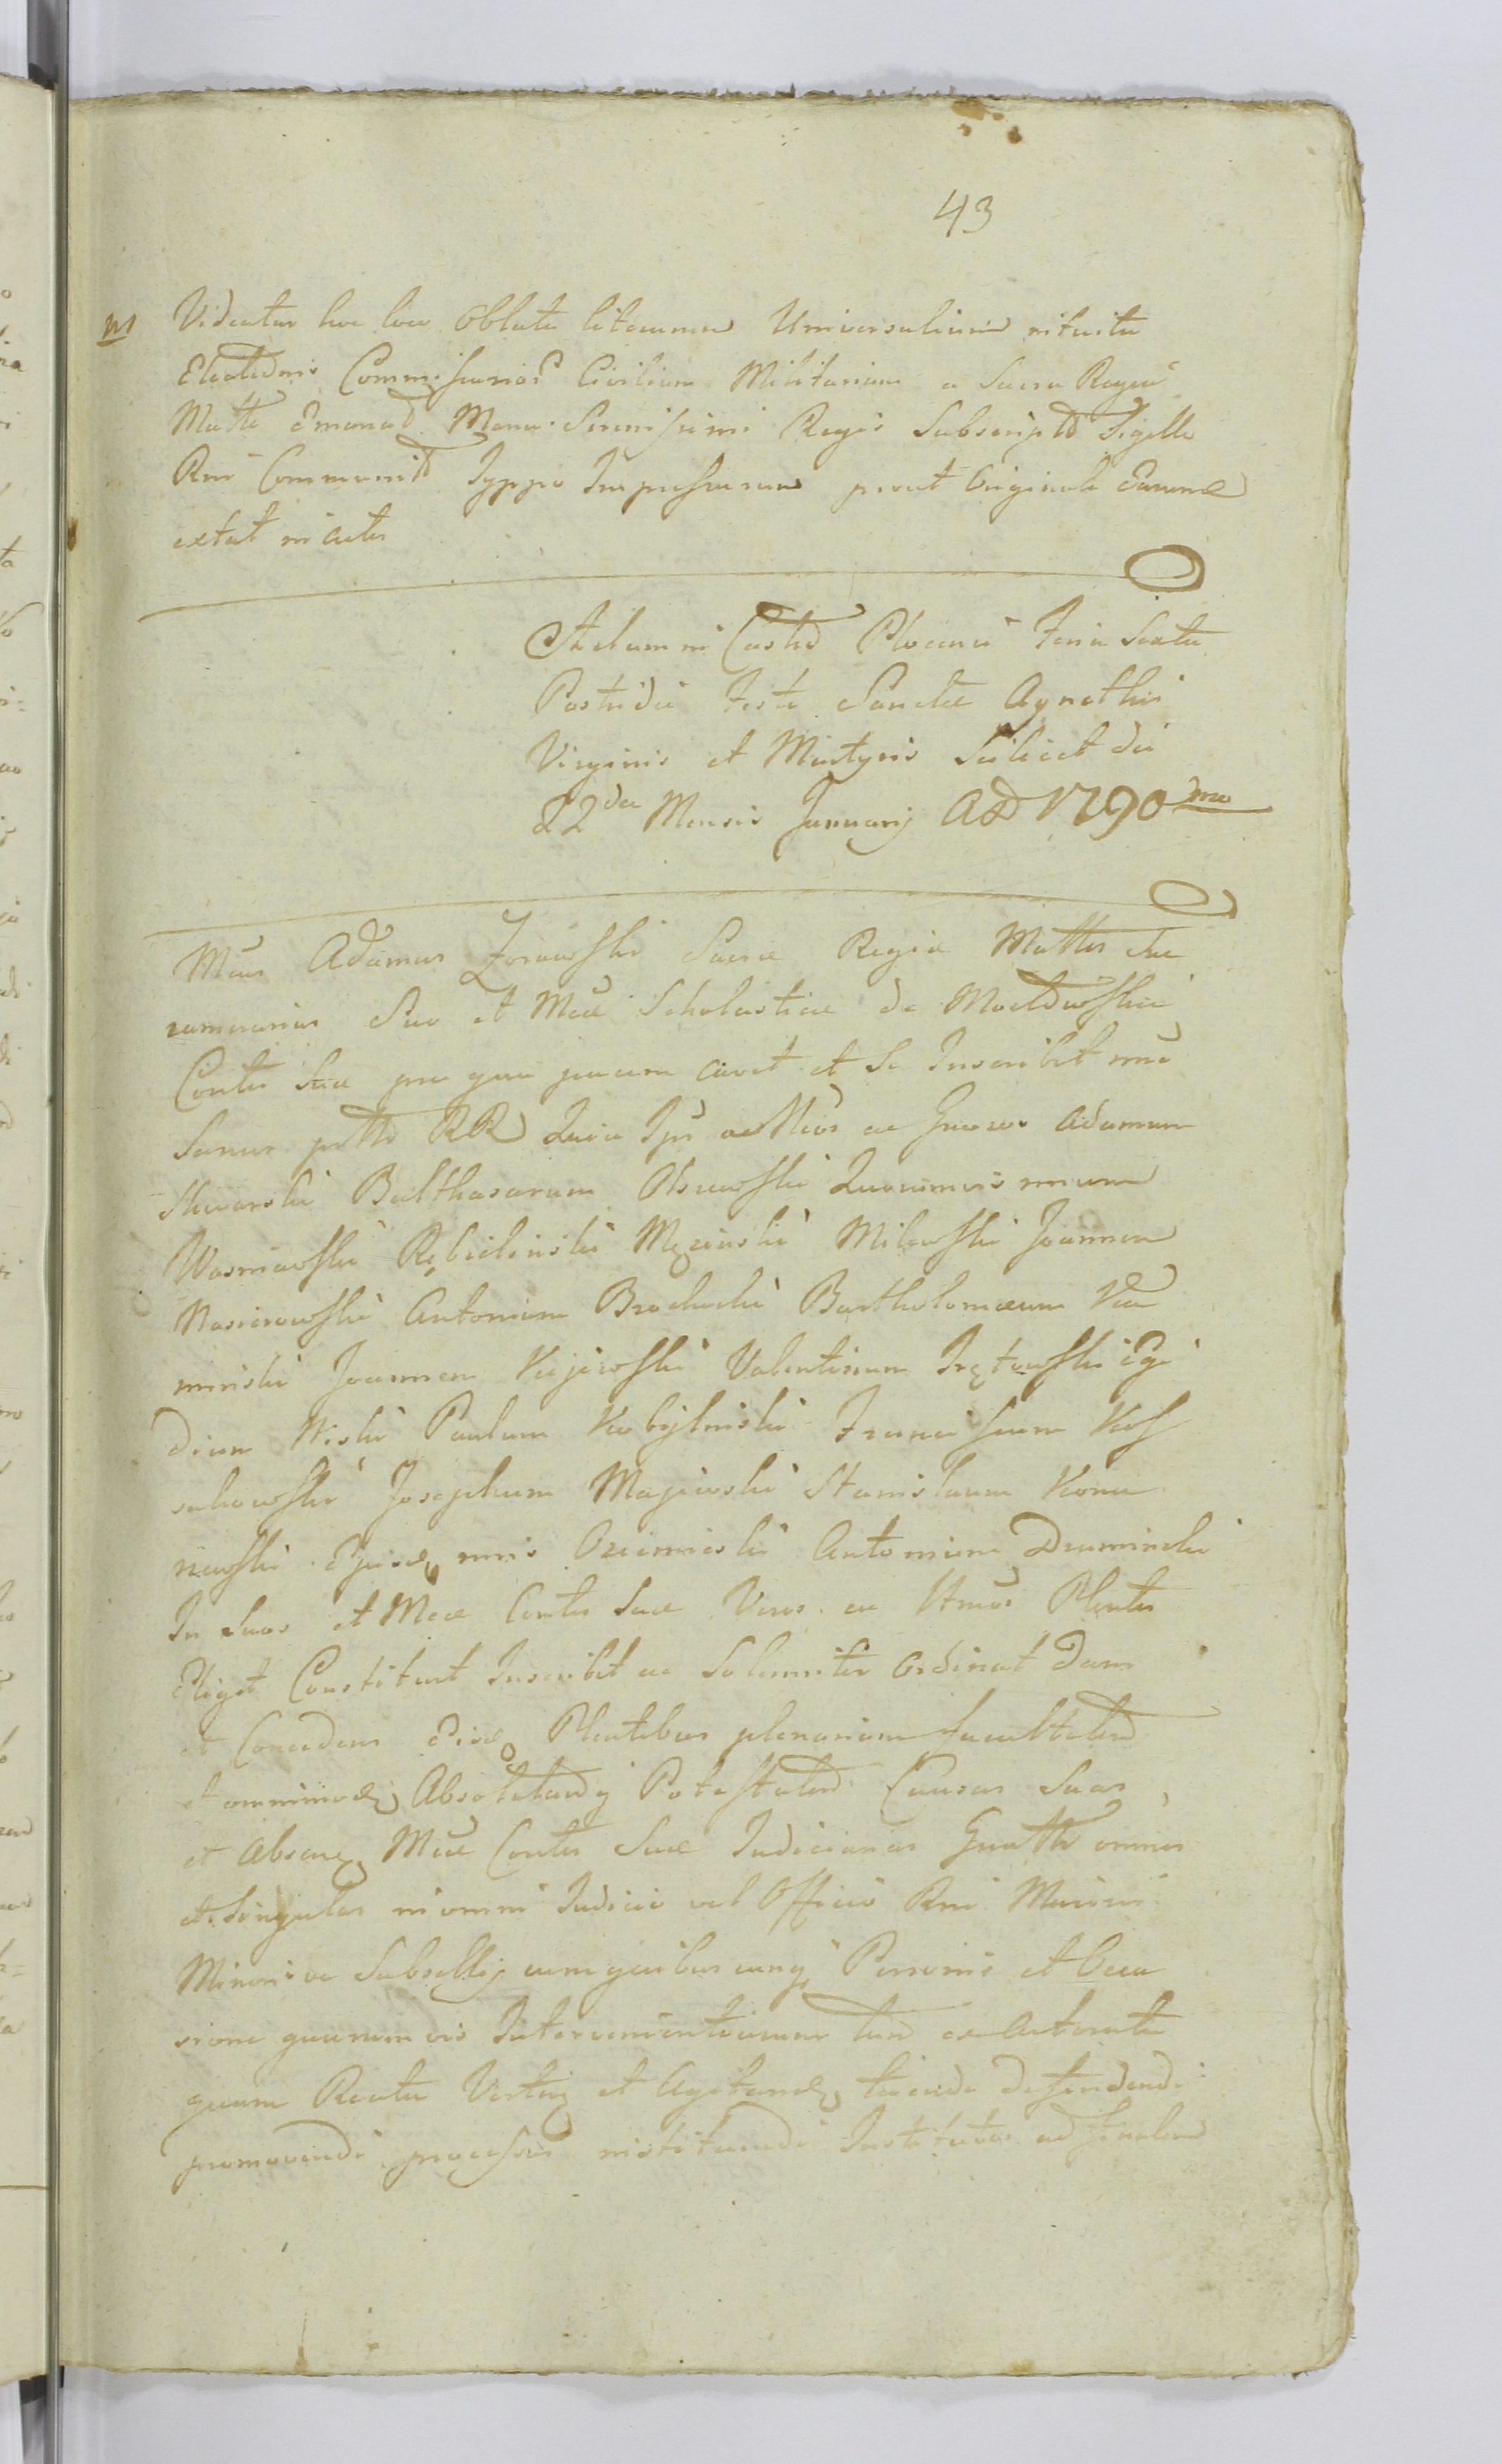 43
Videatur hoc loco Oblata literarum Universalium intuitu
Electionis Commissarior Civilium Militarium a Sacra Regia
Matte Emanat Manu Serenissimi Regis Subscript Sigillo
Rni Communit Typpo Impressarum prout Originale Earund
extat in actis
Actum in Castro Plocensi Feria Sexta
Postridie Festi Sanctae Agnethis
Virginis et Martyris Scilicet die
22da Mensis January AD 1790mo
Mcus Adamus Zorawski Sacrae Regiae Mattis Sue
camerarius Suo et Mcae Scholasticae de Moldowskie
Contis Suae pro qua cavet et Se Inscribet
Sanus RR Quia Ips ac Gnosos Adamum
Skwarski Balthasarum Olszewski Quorumvis unum
Wasniewski Rębieliński Męzinski Milewski Joannem
Nasierowski Antonium Brochocki Bartholomaeum Ka
minski Joannem Kijewski Valentinum Trętowski Egi
dium Niski Paulum Kobylinski Franciscum Kos
sakowski Josephum Majewski Stanislaum Kona
rzewski Ejusd nris Oziemski Antonium Duminski
In Suos et Mcae Contis Suae Veros ac Plentes
Eligit Constituit Inscribit ac Solemniter Ordinat Dans
et Concedens Eisd Plentibus plenariam facultatem
et omnimod Absolutamq Potestatem Causas Suas
et Mcae Contis Suae Judiciarias Gnatt omnes
et Singulas in omni Judicio vel Officio Rni Maioris
Minorisve Subsellij cum quibuscunq Personis et Occa
sione quarumvis Intervenientiarum tam ex Actoratu
quam Reatu Vertiq et Agitand tuendi defendendi
promovendi processus instituendi Institutos ad finalem